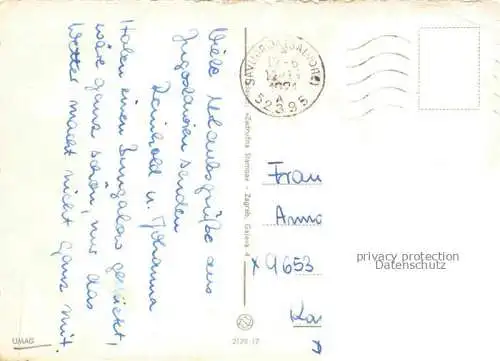 Viele Urlaubsgrüße aus
Jugoslawien senden
Reinhold u. Johanna
Haben einen Bungalow gemietet,
wäre ganz schön, nur das
Wetter macht nicht ganz mit.
UMAG
52395
Zagreb, Gajeva 4
2129 17
Frau
Anna
9653
privacy protection
Datenschutz